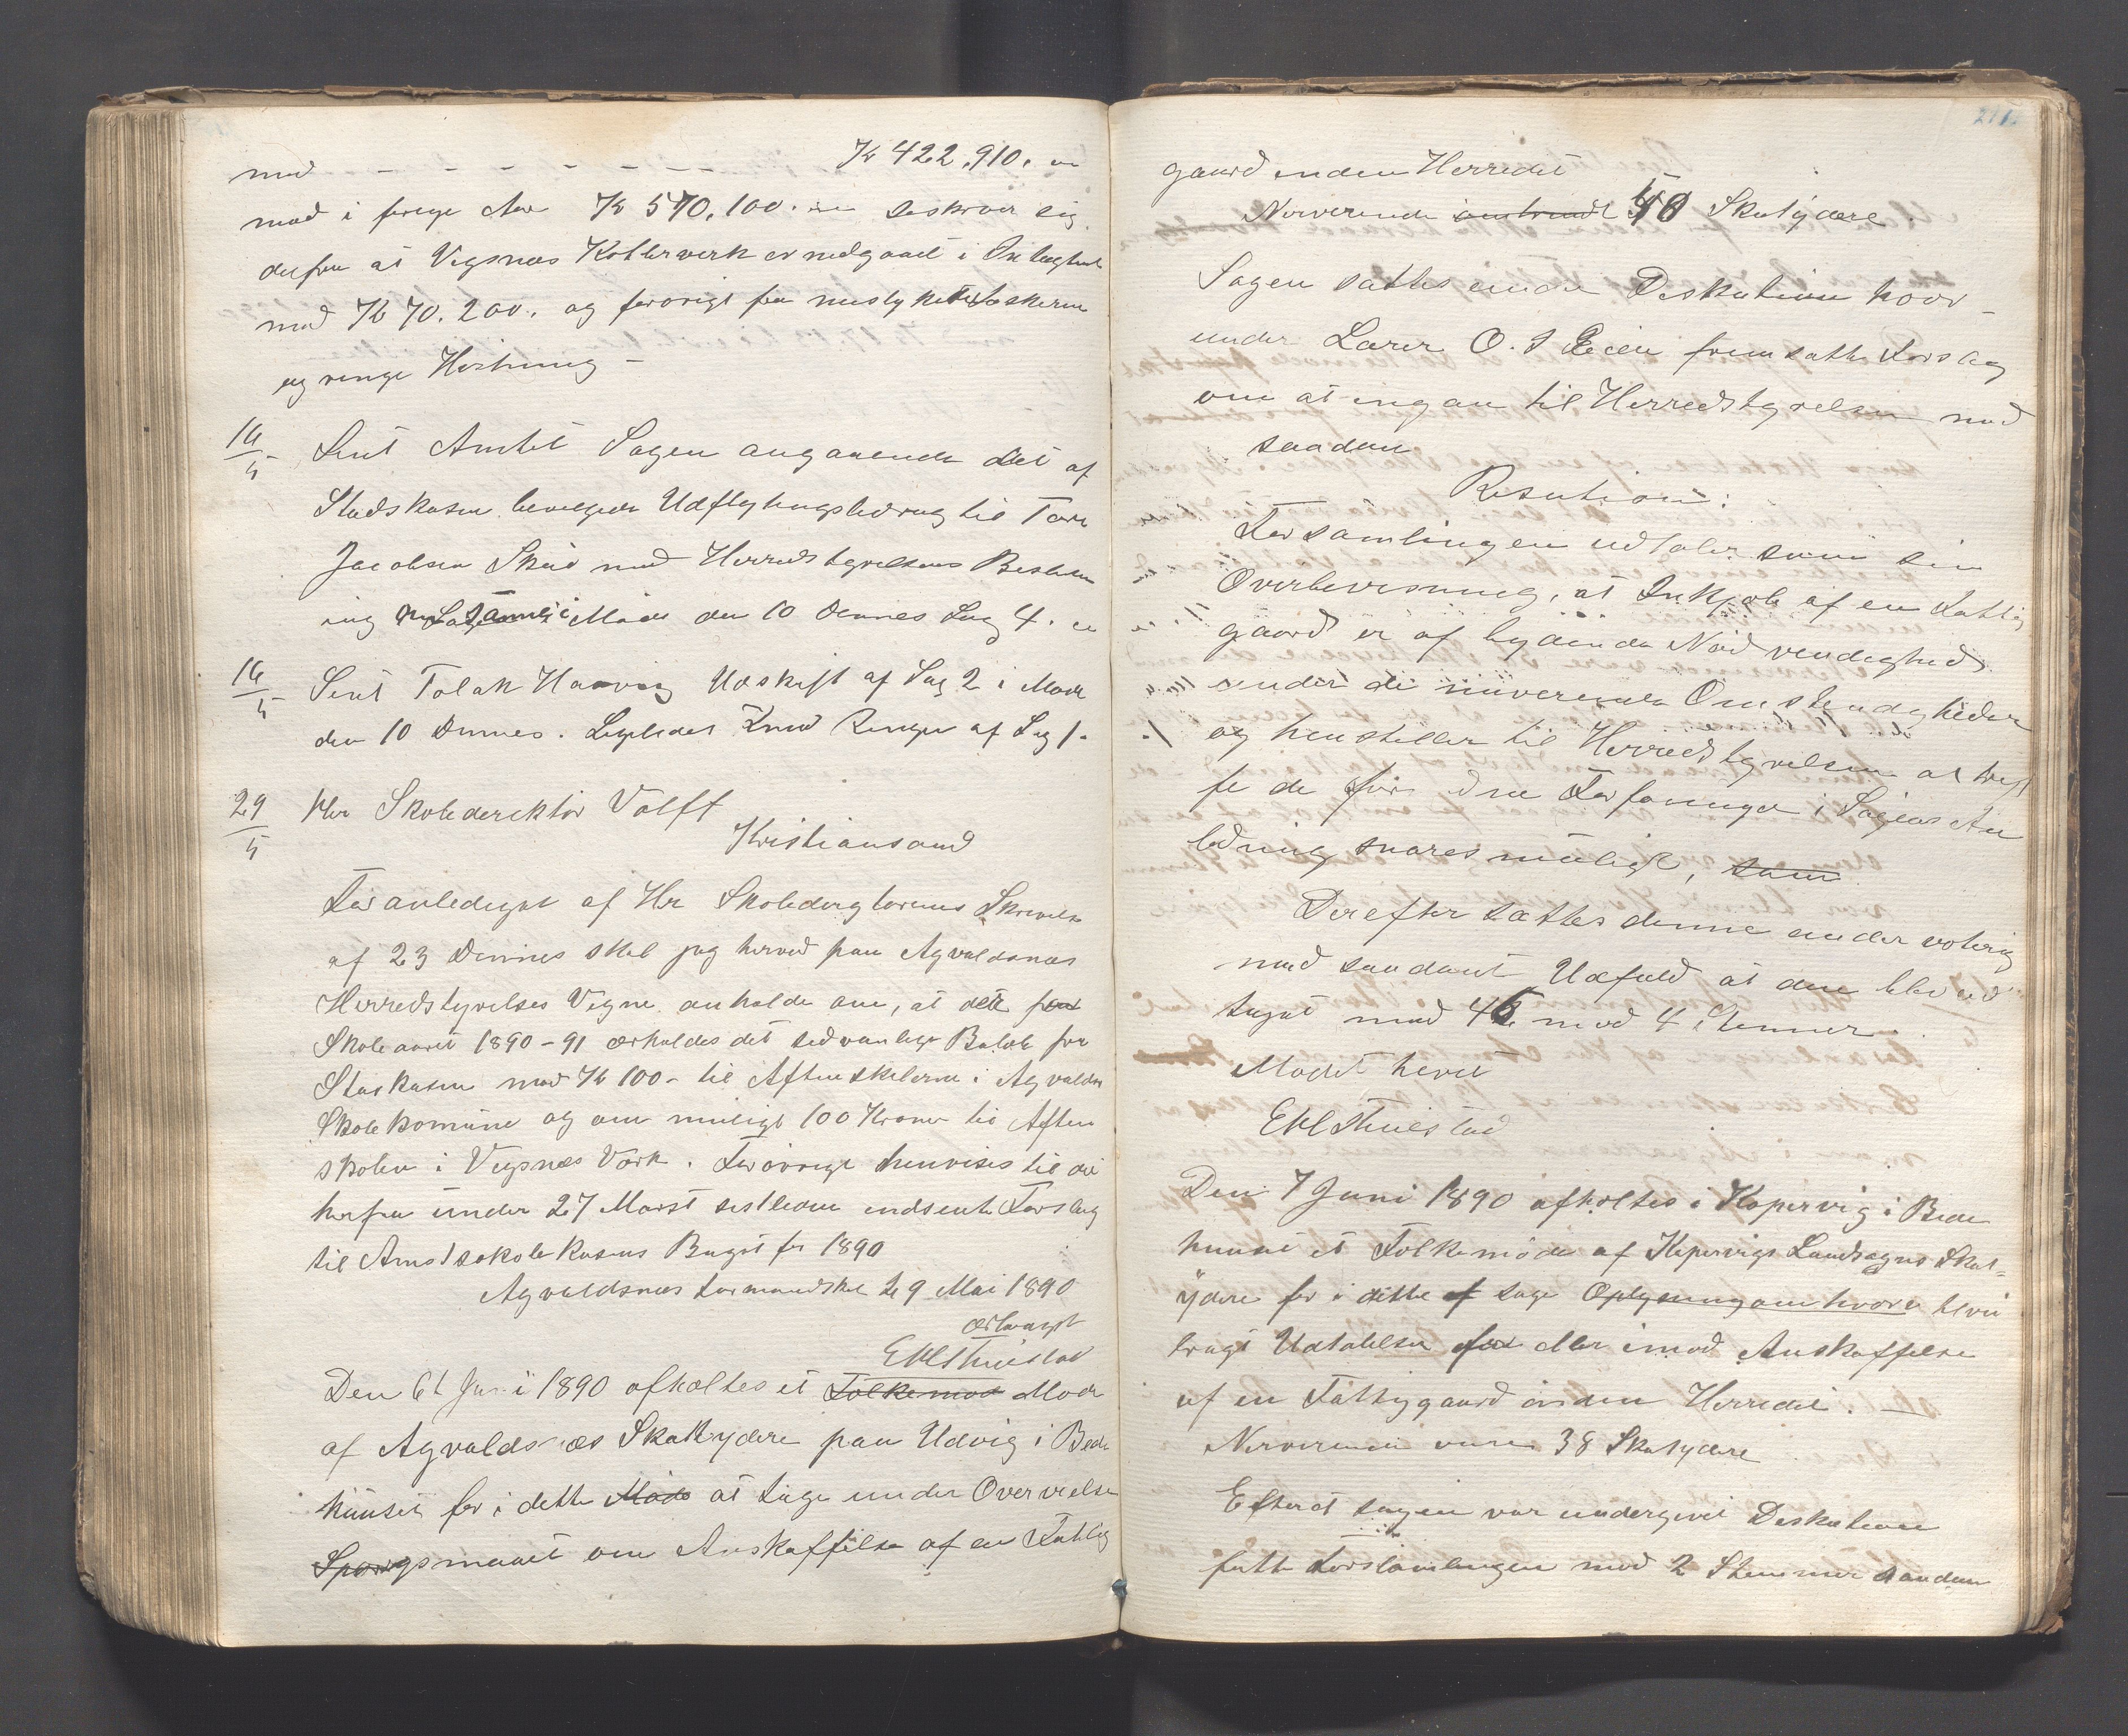 med - - - - - - - - Kr 422,910. "
mod i forige Aar Kr 570,100. " deskriver sig
derfra at Vigsnæs Kobberverk er nedgaaet i Indtægt
med Kr 70.200. og forøvrigt fra mislykkede Fiskerier
og ringe Hyrtning -
16/5 Sent Amtet Sagen angaaende det af
Stadskasen bevilgede Udflytningsbidrag til Tore
Jacobsen Skeie med Herredstyrelsens Beslutn
ing i Møde den 10 Dennes Sag 4. "
16/5 Sent Tolak Havig Udskrift af Sag 2 i Møde
den 10 Dennes. Ligeledes Knud Ringen af Sag 1.
29/5 Hr Skoledirektør Volff
Kristiansand
Foranlediget af Hr Skoledirektørens Skrivelse
af 23 Dennes skal jeg herved paa Agvaldsnæs
Herredstyrelses Vegne anholde om, at der for
Skoleaaret 1890-91 erholdes det sedvanlige Beløb fra
Staskasen med Kr 100- til Aftenskolerne i Agvaldsn
Skolekomune og om muligt 100 Kroner til Aften
skolen i Vigsnæs Værk. Forøvrigt henvises til de
herfra under 27 Marst sistleden indsente Forslag
til Amtsskolekasens Buget for 1890
Agvaldsnæs Formandskab 29 Mai 1890
ærbødigst
EHThuestad
Den 6te Juni 1890 afholtes et Folkemøde Møde
af Agvaldsnæs Skatydere paa Udvig i Bede
huuset for i dette Møde at tage under Overveielse
Spørgsmaalet om Anskaffelse af en Fattig
gaard inden Herredet
Nerverende omtrendt 50 Skatydere.
Sagen sattes under Deskution hvor
under Lærer O. J Eeien fremsatte Forslag
om at ingaa til Herredstyrelsen med
saadan
Resulution:
Forsamlingen udtaler som sin
Overbevisning, at Inkjøb af en Fattig
gaard er af bydende Nødvendighed
under de nuverende Omstendigheder
og henstiller til Herredstyrelsen at tref
fe de fornødne Forføninger i Sagens An
ledning snarest muligt, som
Derefter sattes denne under votering
med saadant Udfald at den blev ved
taget med 46 mod 4 Stemmer.
Mødet hevet
EHThuestad
Den 7 Juni 1890 afholtes i Kopervig i Bede
huuset et Folkemøde af Kopervigs Landsogns Skat=
ydere for i dette at tage Oplysning om hvor blev
bragt Udtalelse for eller imod Anskaffelse
af en Fattiggaard inden Herredet. -
Nerverende vare 38 Skatydere
Efterat sagen var undergivet Deskution
fatte Forsamlingen mod 2 Stemmer saadan